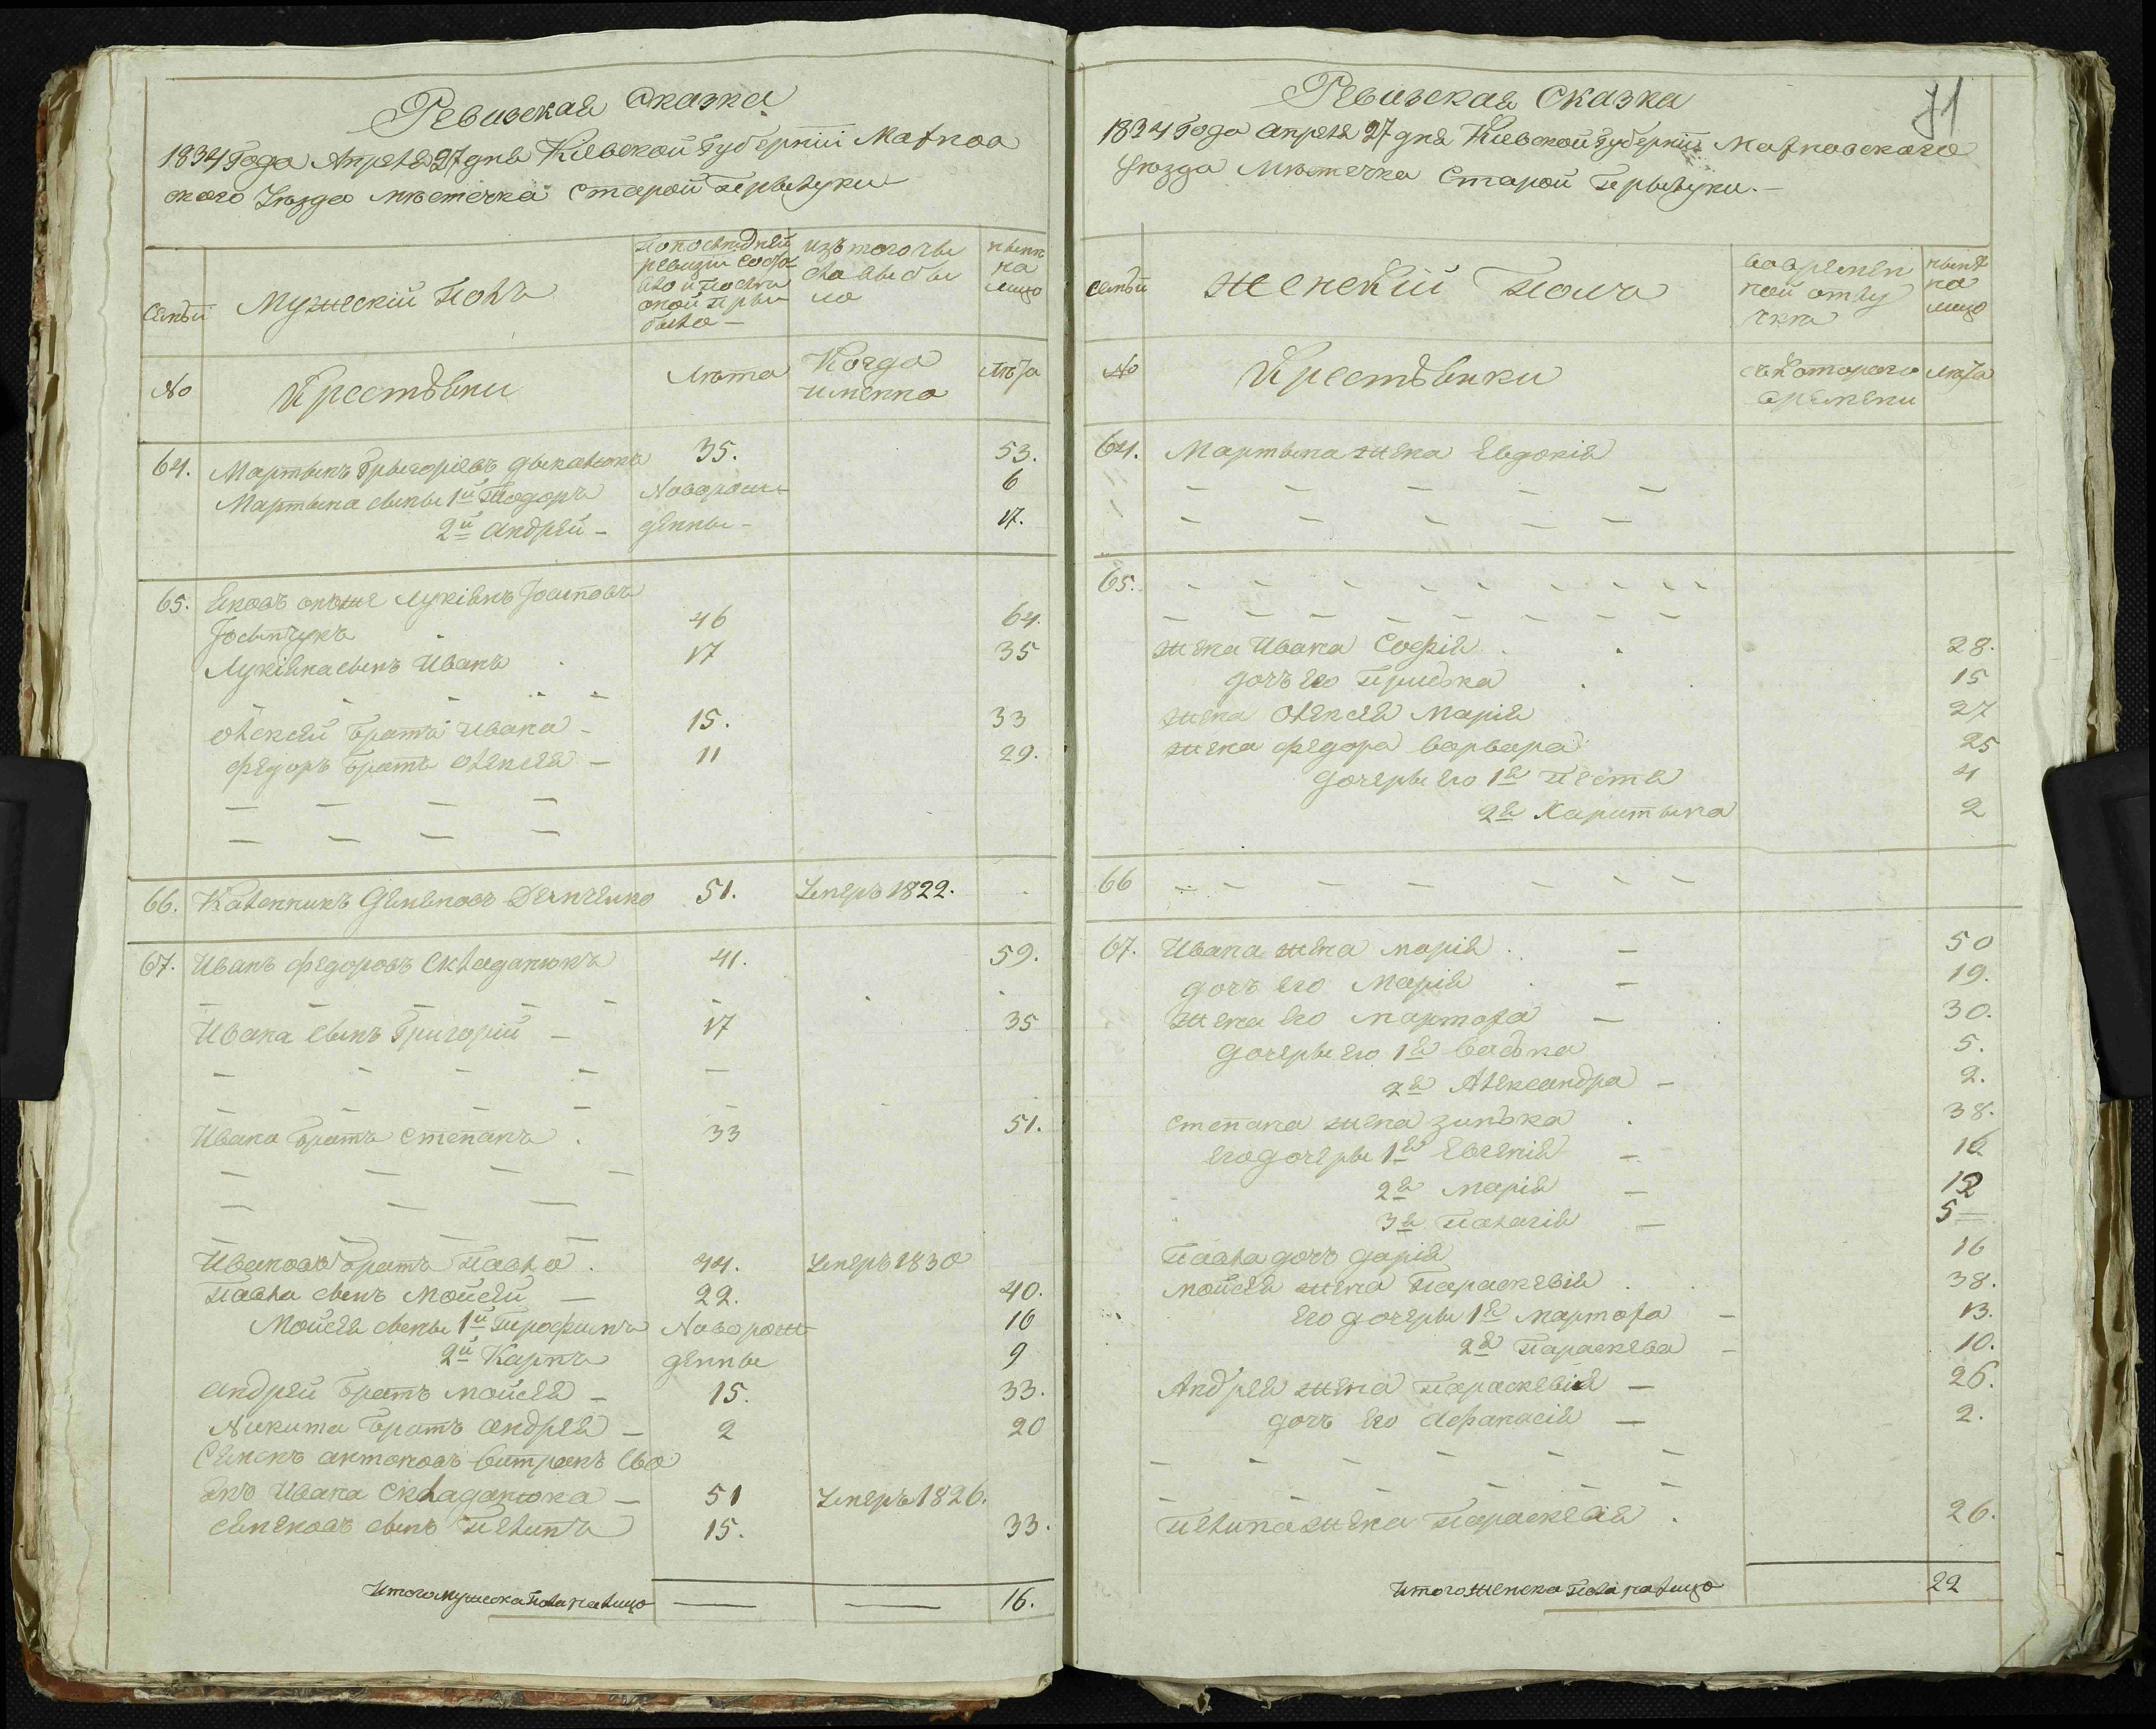 Ревизская Сказка
1834 Года Апреля 27 дня Киевской Губернiи Махнов
ского Уѣзда мѣстечка Старой Прылуки
Семьи
Мужескiй Полъ
По последней
ревизiи состо
яло и после
оной прыи
было
изъ того чы
сла выбы
ло
ныне
на
лицо
No
Крестьяни
Лѣта
Когда
именно
Лѣта
64. Мартынъ Грыгорiевъ 35. 53.
Мартына сыны 1й Тодоръ Новорож 6
2й Андрей денны 17.
65. Лукiянъ
46 64.
Лукiяна сынъ Иванъ 17 35
Олексей братъ Ивана 15. 33
Федоръ братъ Олексея 11 29.
66. Каленникъ Деменовъ 51. Умеръ 1822.
67. Иванъ Федоровъ Складанюкъ 41. 59.
Ивана сынъ Григорiй 17 35
Ивана братъ Степанъ 33 51.
Ивановъ братъ Павло 44. Умеръ 1830
Павла сынъ Мойсей 22. 40.
Мойсея сыны 1й Трофимъ Новорож 16
2й Карпъ денны 9
Андрей братъ Мойсея 15. 33.
Никита братъ Андрея 2 20
Семенъ Антоновъ Витракъ сво
якъ Ивана Складанюка 51 Умеръ 1826.
Семеновъ сынъ Пилипъ 15. 33.
Итого мужеска пола на лицо 16.
71
Ревизская Сказка
1834 Года Апреля 27 дня Киевской Губернiи Махновского
Уѣзда Мѣстечка Старой Прылуки.
Семьи
Женскiй Полъ
во времен
ной отлу
чкѣ
ныне
на
лицо
No
Крестьянки
съ котораго
времени
лѣта
64. Мартына жена Евдокiя
65.
жена Ивана Софiя 28.
дочь его Приська 15
жена Олексея Марiя 27
жена Федора Варвара 25
дочеры его 1я Пестя 4
2я Харитына 2
66
67. Ивана жена Марiя 50
дочь его Марiя 19.
жена его Мартоха 30.
дочеры его 1я Васька 5.
2я Александра 2.
Степана жена Зинька 38.
его дочеры 1я Евгенiя 16
2я Марiя 12
3я Палагiя 5
Павла дочь Дарiя 16
Мойсея жена Параскевiя 38.
его дочеры 1я Мартоха 13.
2я Параскева 10.
Андрея жена Параскевiя 26.
дочь его Афанасiя 2.
Пилипа жена Параскевiя 26.
Итого женска пола на лицо 22